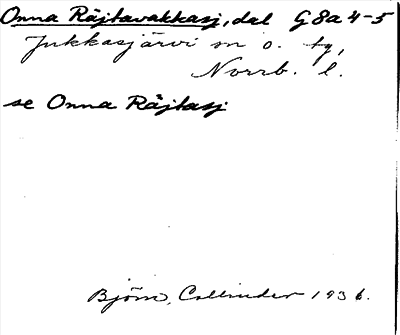 Onna Räjtavakkasj, dal G 8a 4-5
Jukkasjärvi sn o. tg,
Norrb. l.
se Onna Räjtasj
Björn Collinder 1936.